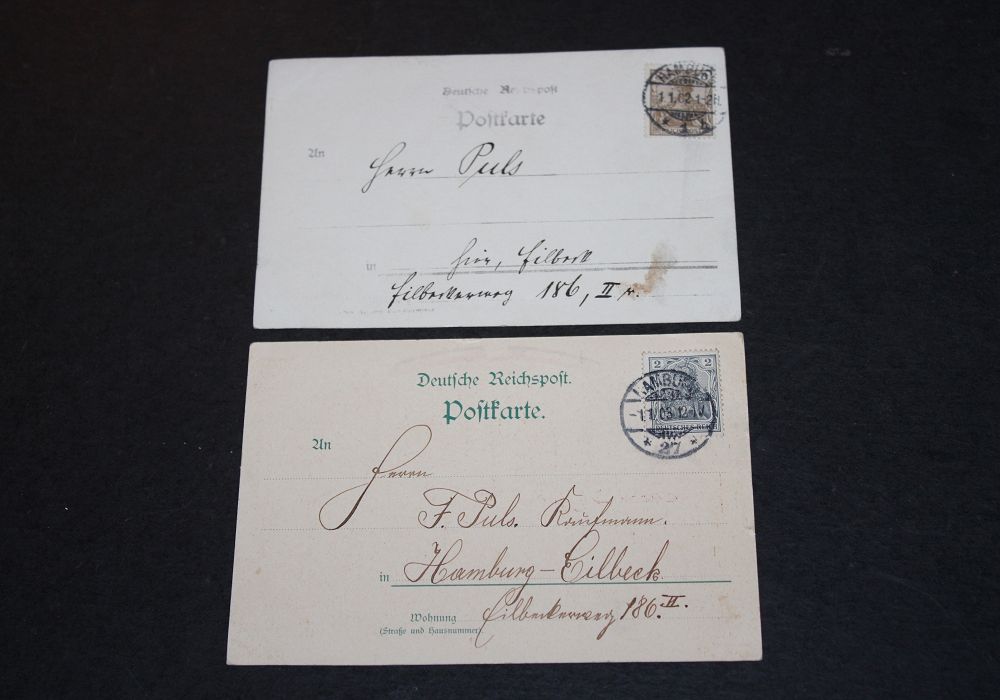 Deutsche Reichspost
Postkarte
HAMBURG
1.1.02.1-2N.
* 1 h
An
Herrn Puls
in hier, Eilbeck
Eilbeckerweg 186, II r.
Deutsche Reichspost.
Postkarte.
2 2
HAMBURG
-1.1.05.12-1V
DEUTSCHES REICH
* 27 *
An
Herrn
F. Puls. Kaufmann.
in Hamburg-Eilbeck
Wohnung Eilbeckerweg 186. II.
(Straße und Hausnummer).